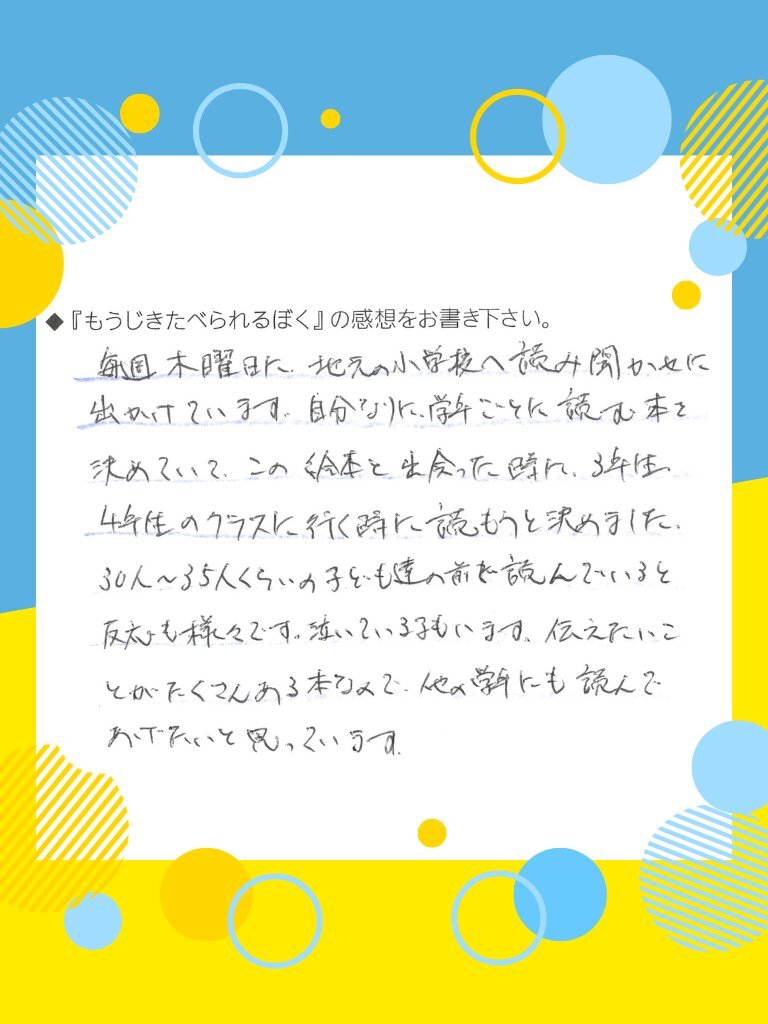 ◆『もうじきたべられるぼく』の感想をお書き下さい。
毎週 木曜日に、地元の小学校へ読み聞かせに
出かけています。自分なりに、学年ごとに読む本を
決めていて、この絵本と出会った時に、3年生、
4年生のクラスに行く時に読もうと決めました。
30人〜35人くらいの子ども達の前で読んでいると
反応も様々です。泣いている子もいます。伝えたいこ
とがたくさんある本なので、他の学年にも読んで
あげたいと思っています。